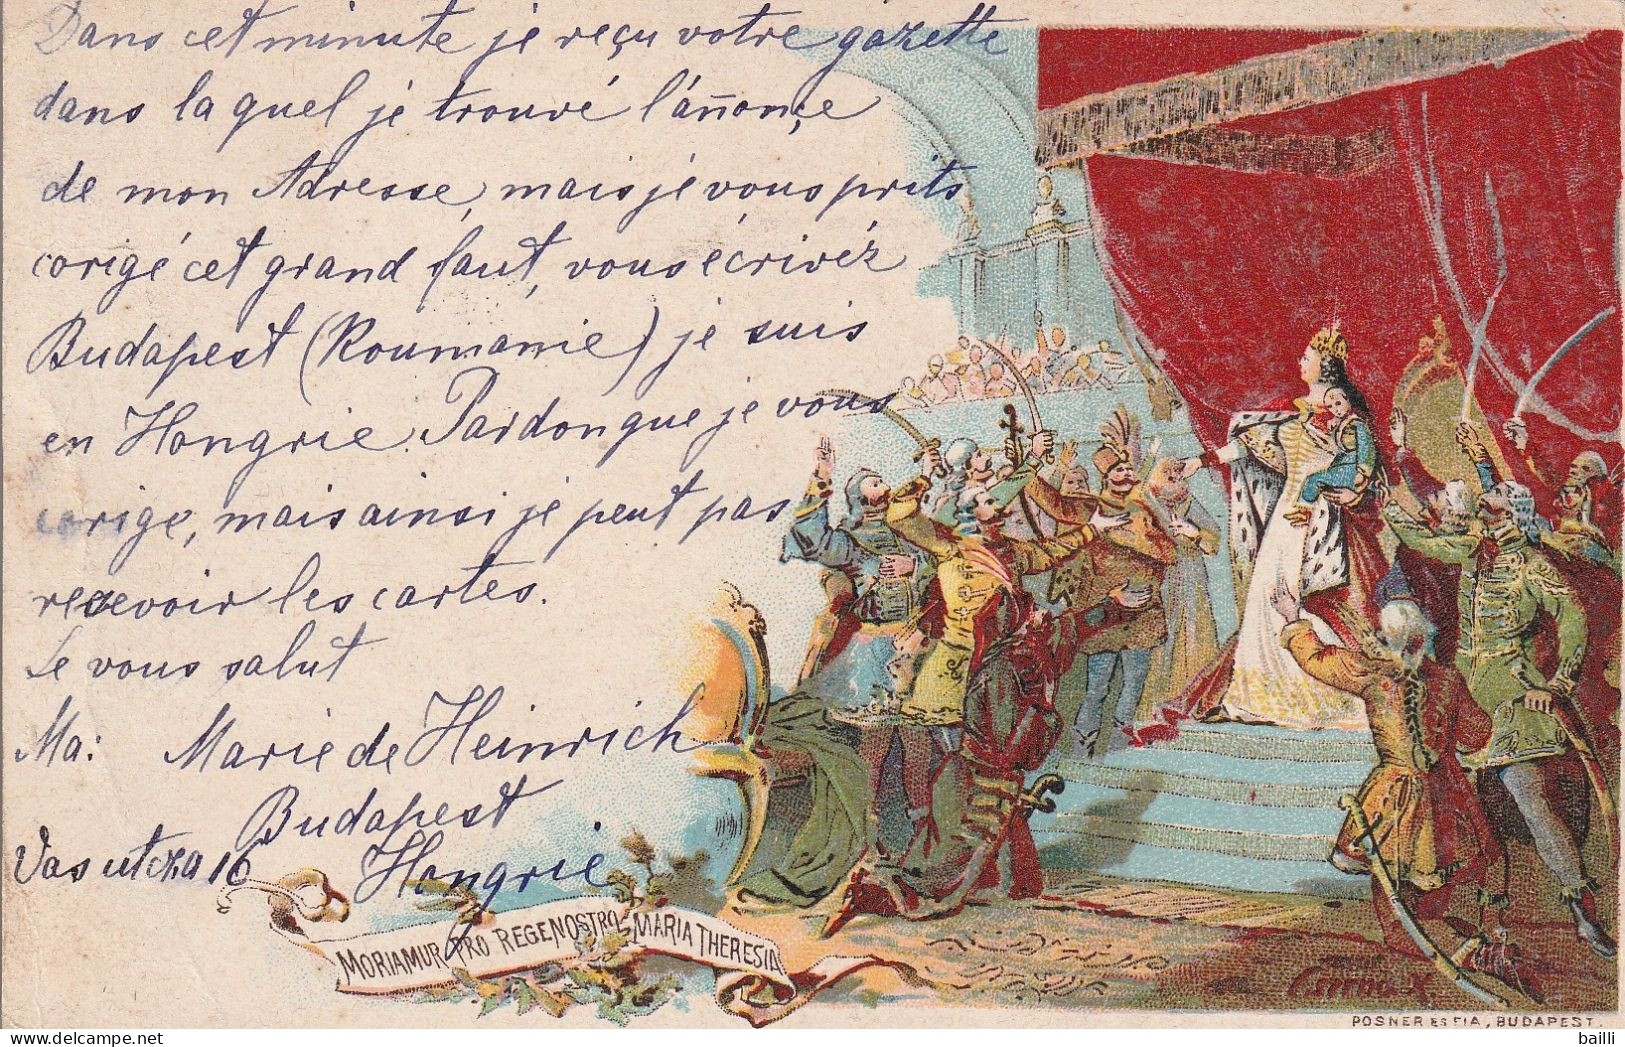 Dans cet minute je reçu votre gazette
dans la quel je trouvé l'áñonçe
de mon Adresse, mais je vous prits
corigé cet grand faut, vous écrivéz
Budapest (Roumanie) je suis
en Hongrie. Pardon que je vous
corige, mais ainsi je peut pas
recevoir les cartes.
Je vous salut
Ma: Marie de Heinrich
Budapest
Vas utcza 16 Hongrie
MORIAMUR PRO REGE NOSTRO MARIA THERESIA
POSNER ES FIA, BUDAPEST.
bailli